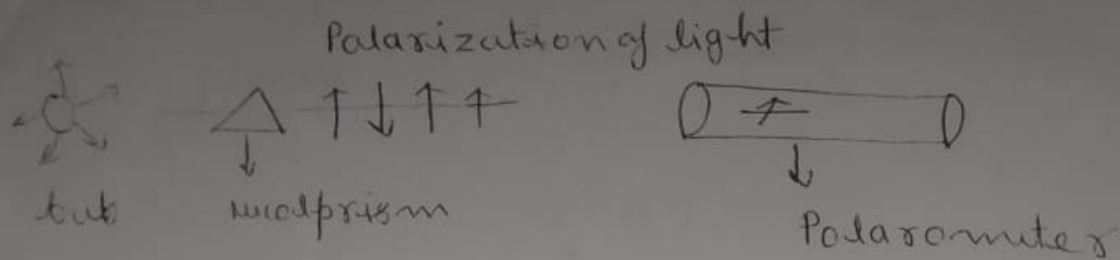 Polarization of light
tub
nicolprism
Polarometer